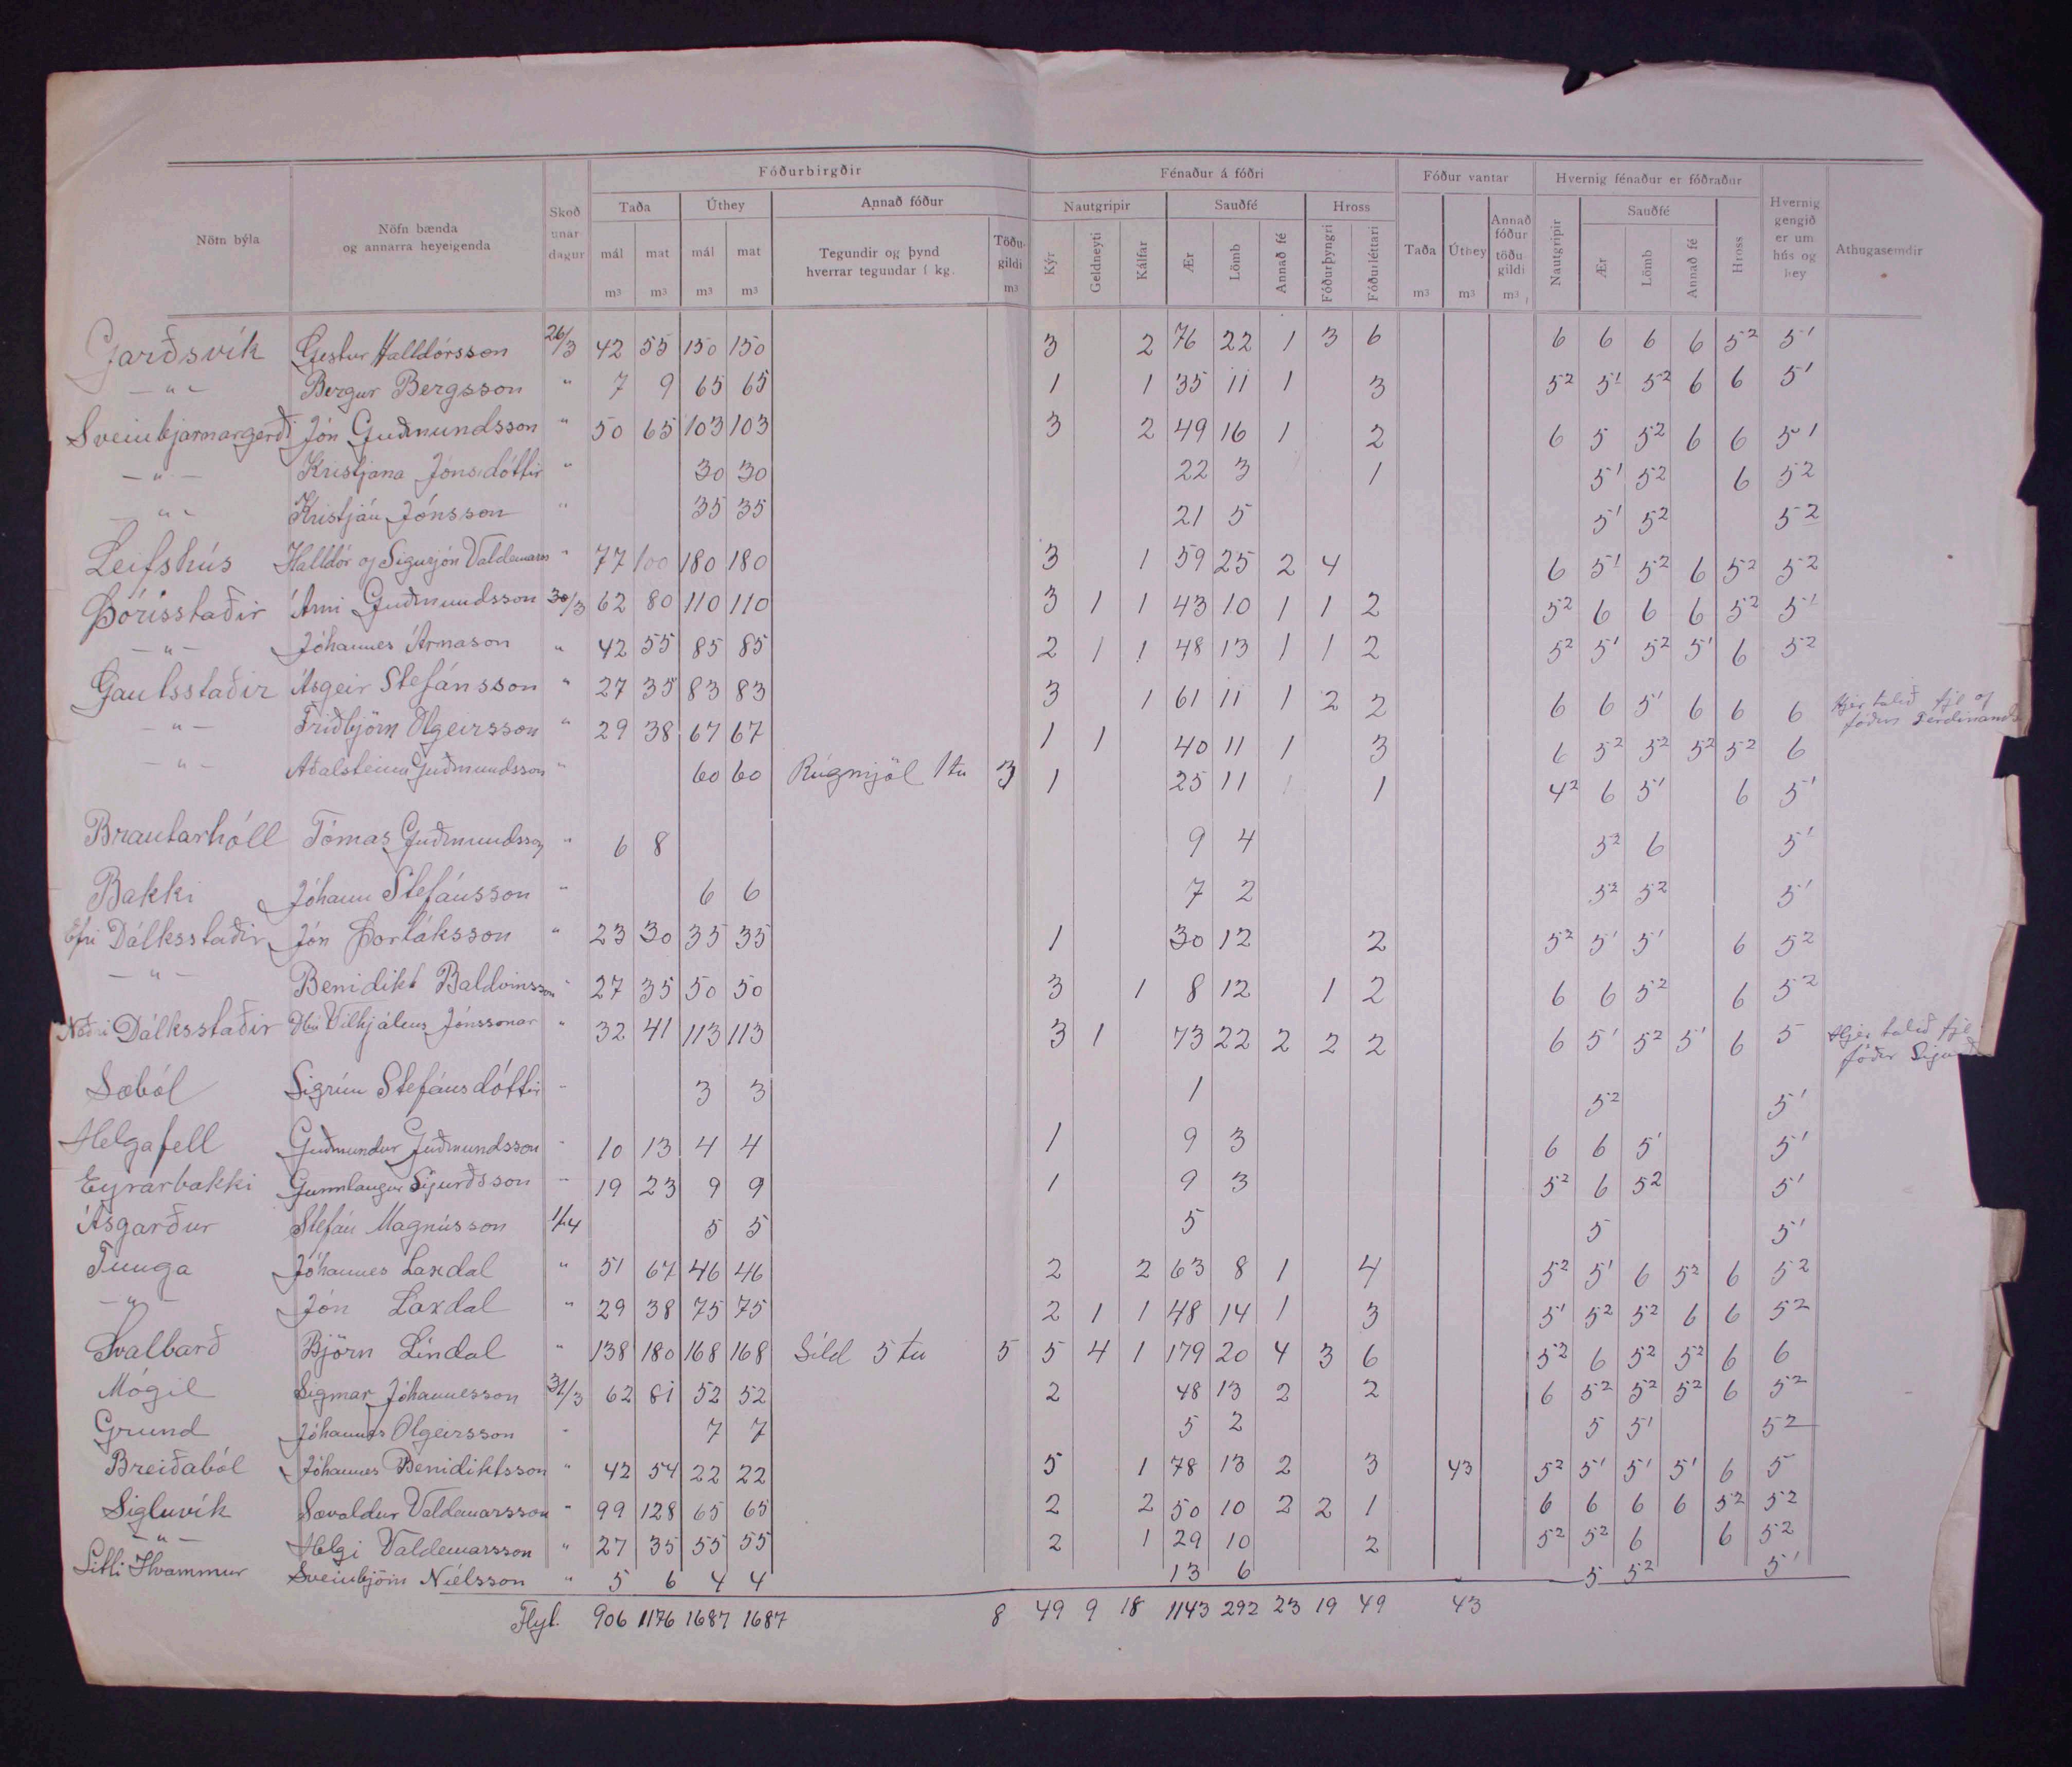 Fóðurbirgðir Fénaður á fóðri Fóður vantar Hvernig fénaður er fóðraður
Nöfn býla Nöfn bænda og annarra heyeigenda Skoðunardagur Taða Úthey Annað fóður Nautgripir Sauðfé Hross Taða Úthey Annað fóður töðugildi Nautgripir Sauðfé Hross Hvernig gengið er um hús og hey Athugasemdir
mál mat mál mat Tegundir og þynd hverrar tegundar í kg. Töðugildi Kýr Geldneyti Kálfar Ær Lömb Annað fé Fóðurþyngri Fóðurléttari Ær Lömb Annað fé
m3 m3 m3 m3 m3 m3 m3 m3
Garðsvík Gestur Halldórsson 26/3 42 55 150 150 3 2 76 22 1 3 6 6 6 6 6 5² 5¹
— " — Bergur Bergsson " 7 9 65 65 1 1 35 11 1 3 5² 5¹ 5² 6 6 5¹
Sveinbjarnargerði Jón Guðmundsson " 50 65 103 103 3 2 49 16 1 2 6 5 5² 6 6 5¹
— " — Kristjana Jónsdóttir " 30 30 22 3 1 5¹ 5² 6 5²
— " — Kristján Jónsson " 35 35 21 5 5¹ 5² 5²
Leifshús Halldór og Sigurjón Valdemars " 77 100 180 180 3 1 59 25 2 4 6 5¹ 5² 6 5² 5²
Þórisstaðir Árni Guðmundsson 30/3 62 80 110 110 3 1 1 43 10 1 1 2 5² 6 6 6 5² 5¹
— " — Jóhannes Árnason " 42 55 85 85 2 1 1 48 13 1 1 2 5² 5¹ 5² 5¹ 6 5²
Gautsstaðir Ásgeir Stefánsson " 27 35 83 83 3 1 61 11 1 2 2 6 6 5¹ 6 6 6 Hjer talið fje og fóður Ferdinands
— " — Friðbjörn Olgeirsson " 29 38 67 67 1 1 40 11 1 3 6 5² 5² 5² 5² 6
— " — Aðalsteinn Guðmundsson " 60 60 Rúgmjöl 1 tu 3 1 25 11 1 4² 6 5¹ 6 5¹
Brautarhóll Tómas Guðmundsson " 6 8 9 4 5² 6 5¹
Bakki Jóhann Stefánsson " 6 6 7 2 5² 5² 5¹
Efri Dálksstaðir Jón Þorláksson " 23 30 35 35 1 30 12 2 5² 5¹ 5¹ 6 5²
— " — Benidikt Baldvinsson " 27 35 50 50 3 1 8 12 1 2 6 6 5² 6 5²
Neðri Dálksstaðir Dbú Vilhjálms Jónssonar " 32 41 113 113 3 1 73 22 2 2 2 6 5¹ 5² 5¹ 6 5 Hjer talið fje fóður
Sæból Sigrún Stefánsdóttir " 3 3 1 5² 5¹
Helgafell Guðmundur Guðmundsson " 10 13 4 4 1 9 3 6 6 5¹ 5¹
Eyrarbakki Gunnlaugur Sigurðsson " 19 23 9 9 1 9 3 5² 6 5² 5¹
Ásgarður Stefán Magnússon 1/4 5 5 5 5 5¹
Tunga Jóhannes Laxdal " 51 67 46 46 2 2 63 8 1 4 5² 5¹ 6 5² 6 5²
— " — Jón Laxdal " 29 38 75 75 2 1 1 48 14 1 3 5¹ 5² 5² 6 6 5²
Svalbarð Björn Líndal " 138 180 168 168 Síld 5 tu 5 5 4 1 179 20 4 3 6 5² 6 5² 5² 6 6
Mógil Sigmar Jóhannesson 31/3 62 81 52 52 2 48 13 2 2 6 5² 5² 5² 6 5²
Grund Jóhannes Olgeirsson " 7 7 5 2 5 5¹ 5²
Breiðaból Jóhannes Benidiktsson " 42 54 22 22 5 1 78 13 2 3 43 5² 5¹ 5¹ 5¹ 6 5
Sigluvík Sævaldur Valdemarsson " 99 128 65 65 2 2 50 10 2 2 1 6 6 6 6 5² 5²
— " — Helgi Valdemarsson " 27 35 55 55 2 1 29 10 2 5² 5² 6 6 5²
Litli Hvammur Sveinbjörn Níelsson " 5 6 4 4 13 6 5 5² 5¹
Flyt. 906 1176 1687 1687 8 49 9 18 1143 292 23 19 49 43